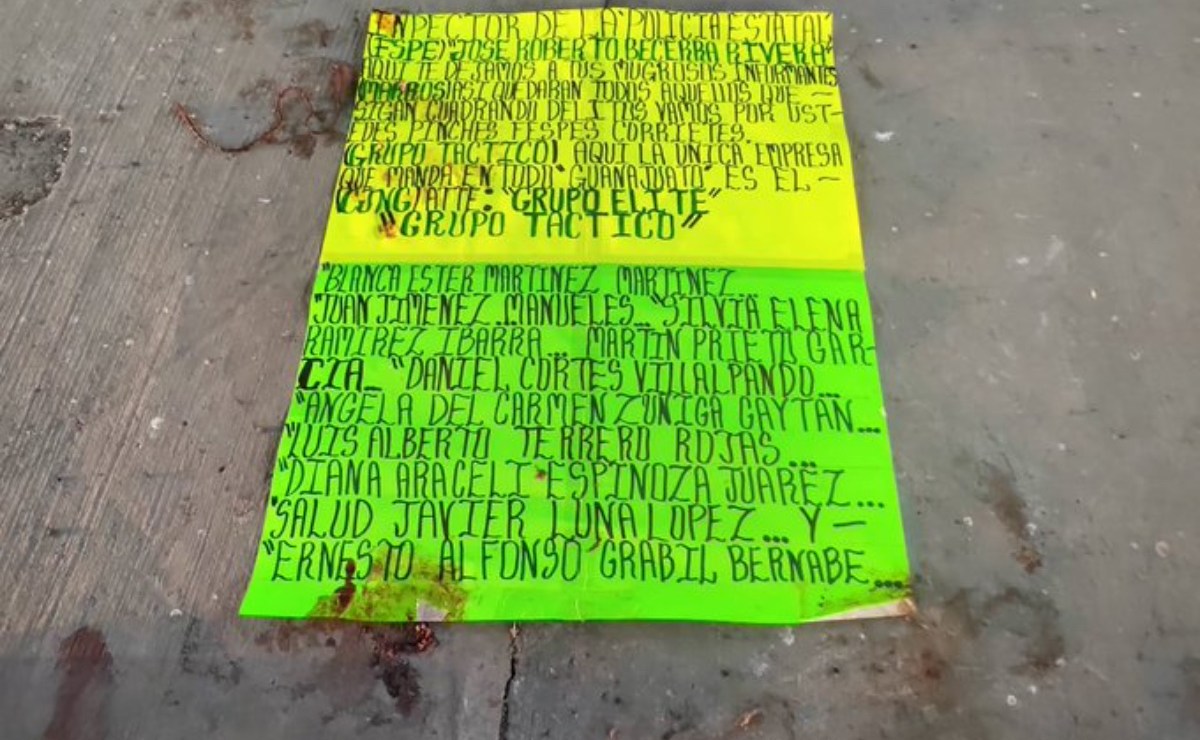 INPECTOR DE LA POLICIA ESTATAL
(FSPE)"JOSE ROBERTO BECERRA RIVERA"
AQUI TE DEJAMOS A TUS MUGROSOS INFORMANTES
(MARROS)ASI QUEDARAN TODOS AQUELLOS QUE –
SIGAN CUADRANDO DELITOS VAMOS POR UST-
EDES PINCHES FESPES CORRIETES.
(GRUPO TACTICO) AQUI LA UNICA EMPRESA
QUE MANDA EN TODO "GUANAJUATO" ES EL –
CJNG/ATTE: "GRUPO ELITE"
"GRUPO TACTICO"
"BLANCA ESTER MARTINEZ MARTINEZ...
"JUAN JIMENEZ MANUELES... "SILVIA ELENA
RAMIREZ IBARRA... MARTIN PRIETO GAR-
CIA_ "DANIEL CORTES VILLALPANDO...
"ANGELA DEL CARMEN ZUNIGA GAYTAN...
"LUIS ALBERTO TERRERO ROJAS...
"DIANA ARACELI ESPINOZA JUAREZ...
"SALUD JAVIER LUNA LOPEZ... Y –
"ERNESTO ALFONSO GRABIL BERNABE...